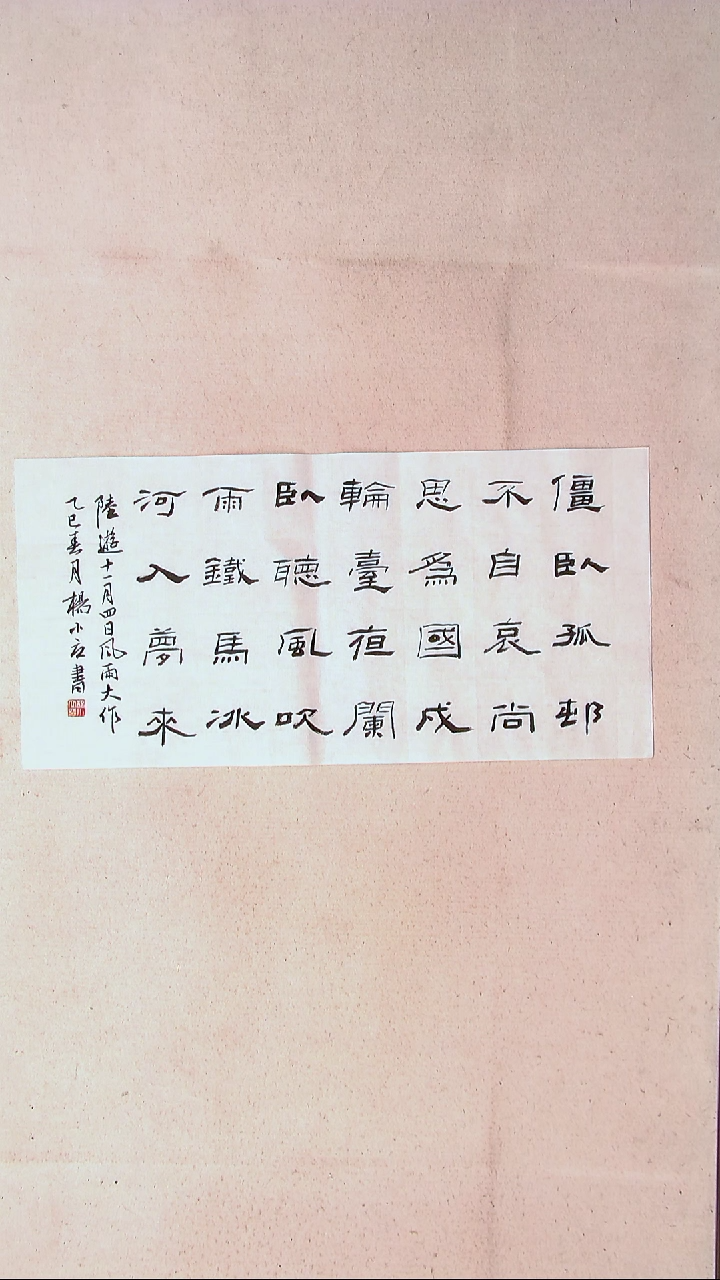 僵臥孤邨
不自哀尚
思為國戍
輪臺夜闌
臥聽風吹
雨鐵馬冰
河入夢來
陸遊十一月四日风雨大作
乙巳春月楊小
書